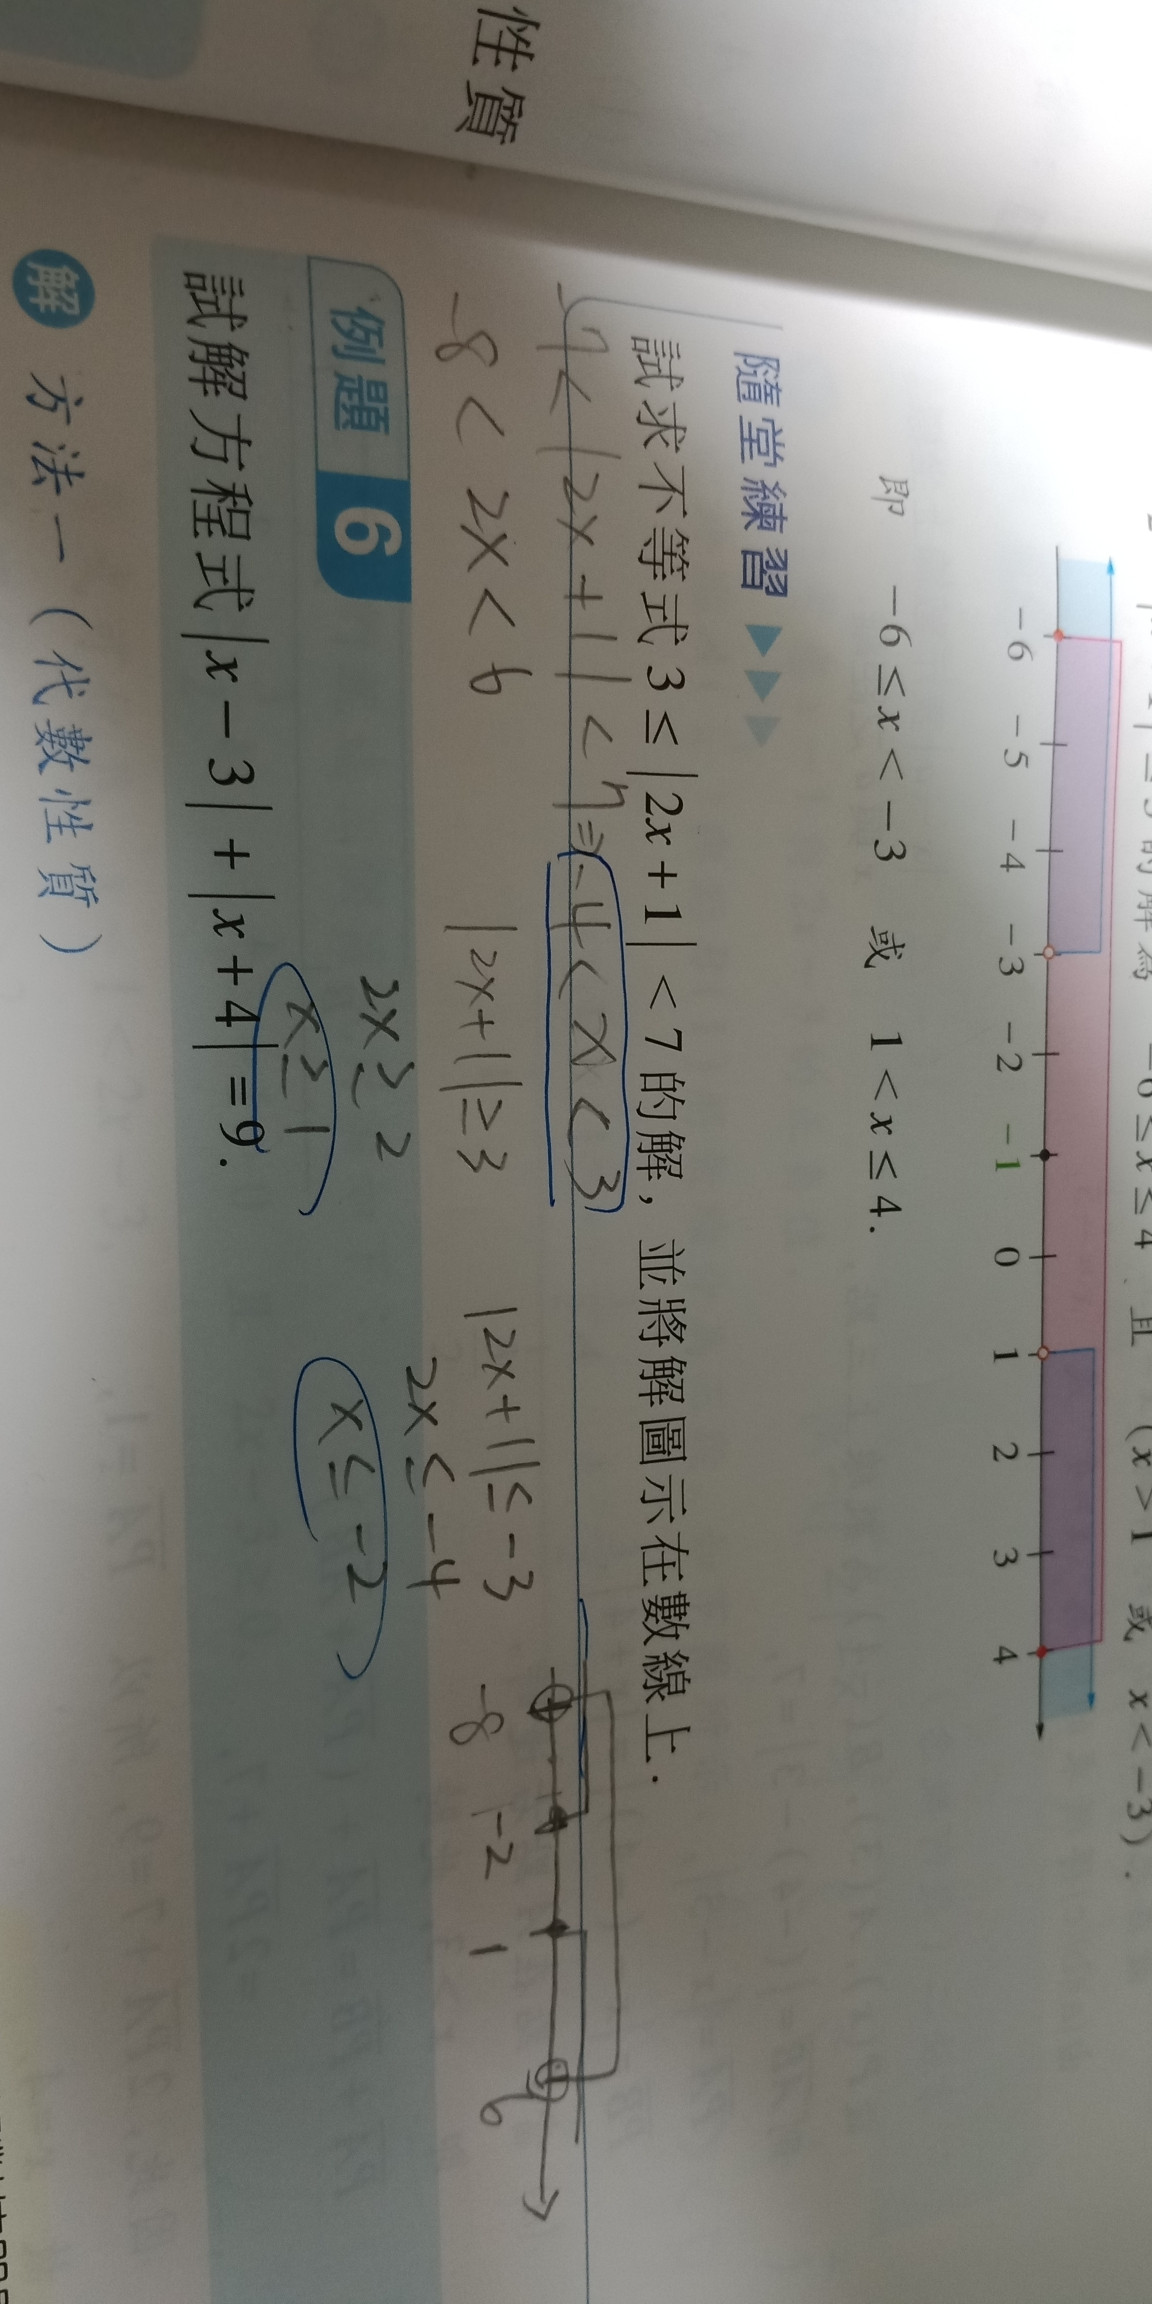 性質
的解為 -6≤x≤4 且 (x>1 或 x<-3).
-6 -5 -4 -3 -2 -1 0 1 2 3 4
即 -6≤x<-3 或 1<x≤4.
隨堂練習
試求不等式 3≤|2x+1|<7 的解，並將解圖示在數線上.
-7<|2x+1|<7=>-4<x<3
-8<2x<6 |2x+1|≥3 |2x+1|≤-3
2x≥2 2x≤-4
x≥1 x≤-2
-8 -2 1 6
例題 6
試解方程式|x-3|+|x+4|=9.
解 方法一（代數性質）